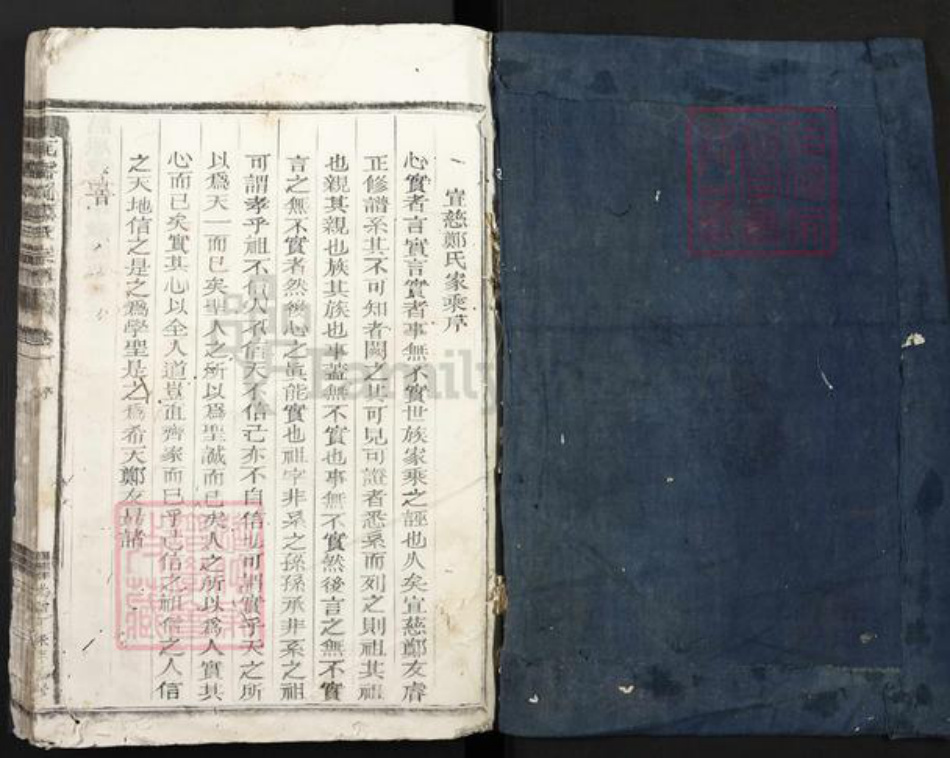 宣慈鄭氏家乘序
心實者言實言實者事無不實世族家乘之誣也久矣宣慈鄭友睿
正修譜系其不可知者闕之其可見可證者悉系而列之則祖其祖
也親其親也族其族也事蓋無不實也事無不實然後言之無不實
言之無不實者然後心之眞能實也祖字非系之孫孫承非系之祖
可謂孝乎祖不信人不信天不信己亦不自信也可謂實乎天之所
以爲天一而已矣聖人之所以爲聖誠而已矣人之所以爲人實其
心而已矣實其心以全人道豈直齊家而已乎己信之祖信之人信
之天地信之是之爲學聖是之爲希天鄭友昜諸